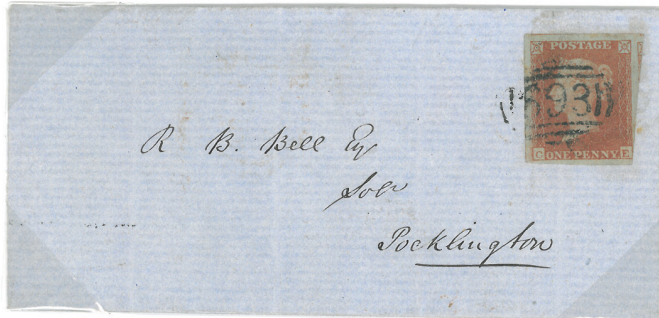 POSTAGE
693
ONE PENNY
C E
R B. Bell Esq
Solr
Pocklington